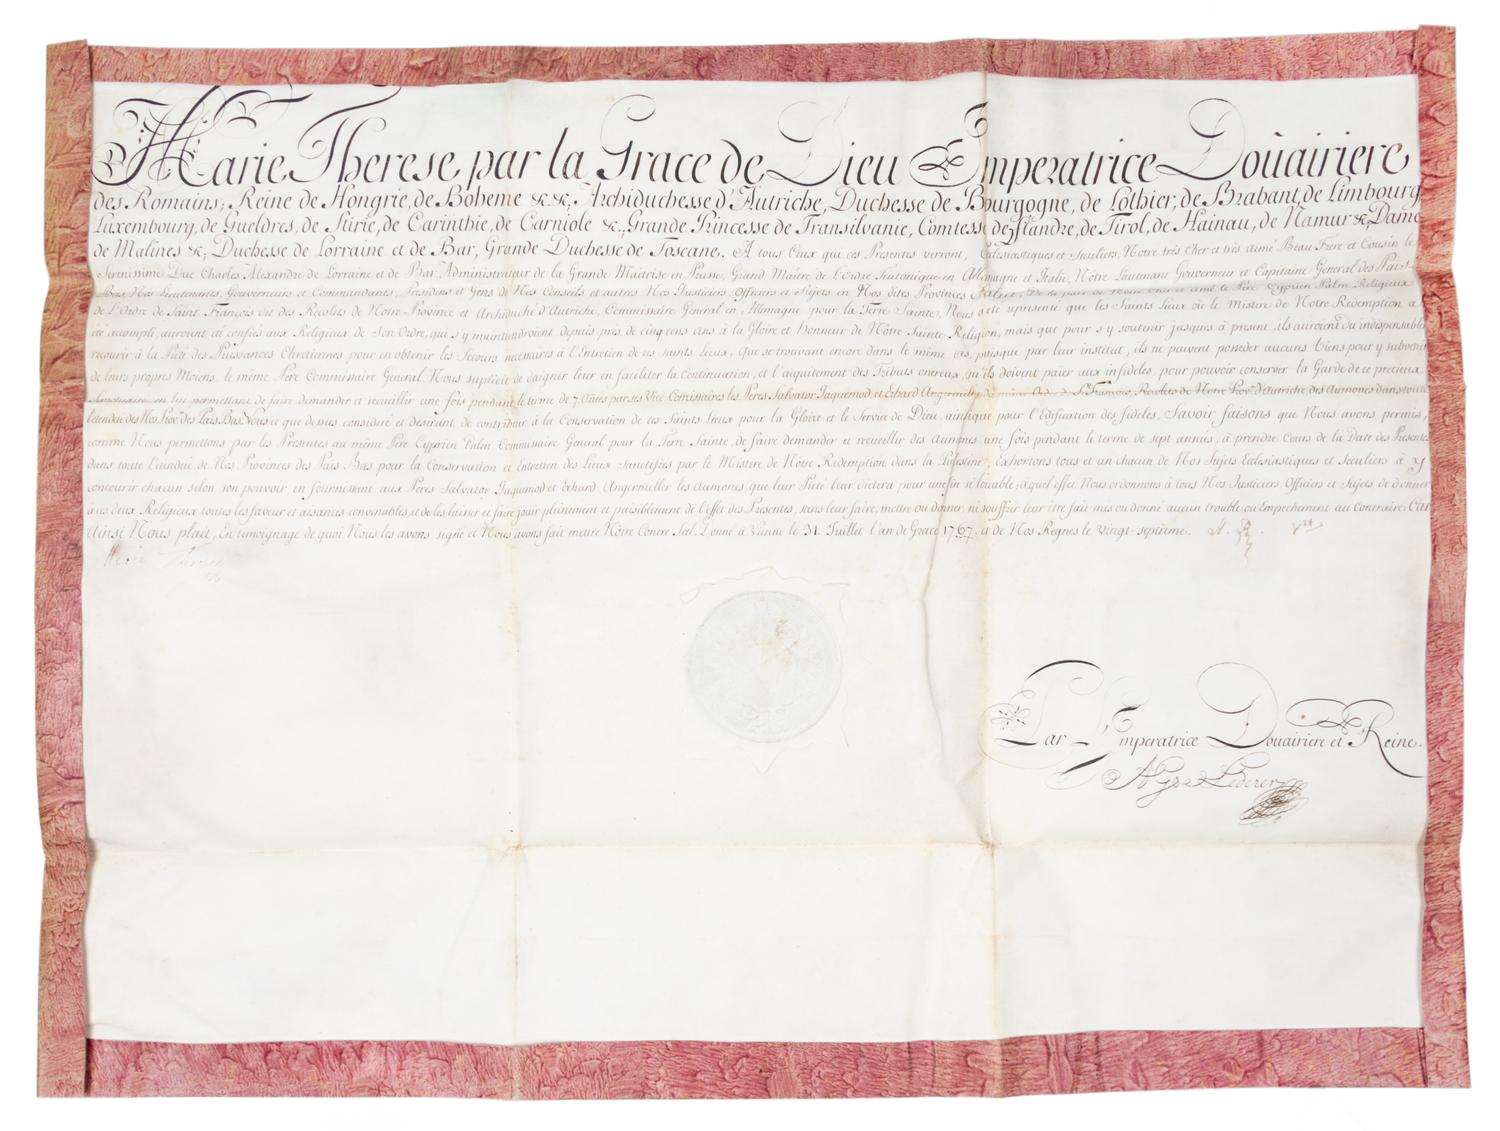 Marie Therese par la Grace de Dieu Imperatrice Doüairiere
des Romains; Reine de Hongrie, de Boheme &c. &c, Archiduchesse d'Autriche, Duchesse de Bourgogne, de Lothier, de Brabant, de Limbourg
Luxembourg, de Gueldres, de Stirie, de Carinthie, de Carniole &c., Grande Princesse de Transilvanie, Comtesse de Flandre, de Tirol, de Hainau, de Namur &c, Dame
de Malines &c, Duchesse de Lorraine et de Bar, Grande Duchesse de Toscane. A tous Ceux qui ces Presentes verront, Eclesiastiques et Seculiers, Notre très Cher et très Aimé Beau Frere et Cousin le
Serenissime Duc Charles Alexandre de Lorraine et de Bar, Administrateur de la Grande Maitrise en Prusse, Grand Maitre de l'Ordre Teutonique en Allemagne et Italie, Nôtre Lieutenant Gouverneur et Capitaine General des Païs
Bas Nos Lieutenants, Gouverneurs et Commandants, Presidens et Gens de Nos Conseils et autres Nos Justiciers, Officiers et Sujets en Nos dites Provinces Salut, De la part de Notre cher et amé le Père Cyprien Palm, Religieux
de L'Ordre de Saint François dit des Recolets de Notre Province et Archiduché d'Autriche, Commissaire General en Allemagne pour la Terre Sainte, Nous a eté representé que les Saints Lieux où le Mistere de Notre Redemption a
eté accompli, auroient eté confiés aux Religieux de Son Ordre, qui s'y maintiendroient depuis près de cinq cens ans à la Gloire et Honneur de Nôtre Sainte Religion, mais que pour s'y soutenir jusques à present, ils auroient du indispensablement
recourir à la Pieté des Puissances Chretiennes pour en obtenir les Secours necessaires à l'Entretien de ces Saints Lieux, Que se trouvant encore dans le même cas, puisque par leur institut, ils ne peuvent posseder aucuns biens pour y subvenir
de leurs propres Moïens, le même Père Commissaire General Nous suplioit de daigner leur en faciliter la Continuation, et l'acquitement des Tributs onereux, qu'ils doivent païer aux infideles, pour pouvoir conserver la Garde de ce precieux
Sanctuaire en lui permettant de faire demander et recueillir une fois pendant le terme de 7. Années par ses Vice Comissaires les Pères Salvator Jaquemod et Erhard Angermiller du même Ordre de St. François, Recolets de Notre Prov. d'Autriche, des Aumones dans toute
letendue des Nos Prov. des Païs Bas. Nous ce que dessus consideré et desirant de contribuer à la Conservation de ces Saints Lieux pour la Gloire et le Service de Dieu, ainsi que pour l'Edification des fideles, Savoir faisons que Nous avons permis,
comme Nous permettons par les Presentes au même Père Cyprien Palm Commissaire General pour la Terre Sainte, de faire demander et recueillir des Aumones une fois pendant le terme de sept années, à prendre Cours de la Date des Presentes
dans toute l'etendue de Nos Provinces des Païs Bas pour la Conservation et Entretien des Lieux Sanctifiés par le Mistere de Nôtre Redemption dans la Palestine, Exhortons tous et un chacun de Nos Sujets Eclesiastiques et Seculiers à y
concourir chacun selon son pouvoir en fournissant aux Pères Salvator Jaquemod et Erhard Angermiller les Aumones, que leur Pieté leur dictera pour une fin si louable, à quel effet Nous ordonnons à tous Nos Justiciers, Officiers et Sujets de donner
à ces deux Religieux toutes les faveur et aisances convenables, et de les laisser et faire jouir pleinement et paisiblement de l'effet des Presentes, sans leur faire, mettre ou donner, ni souffrir leur être fait mis ou donné aucun trouble ou Empechement au contraire Car
Ainsi Nous plait, En temoignage de quoi Nous les avons signé et Nous avons fait mettre Nôtre Contre Scel. Donné à Vienne le 31. Juillet l'an de Grace 1767. et de Nos Regnes le vingt-septieme.
Marie Therese
Par L'Imperatrice Doüairiere et Reine.
Lederer